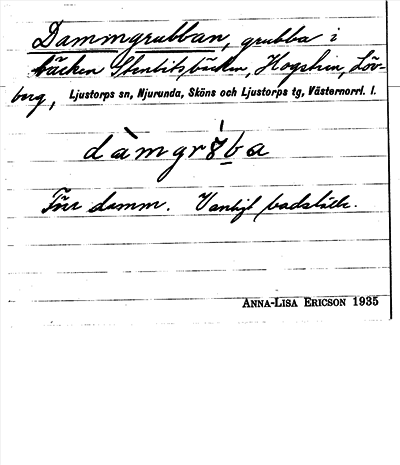 Dammgrubban, grubba i
bäcken Stenbitsbäcken, Hogstein, Löv-
berg, Ljustorps sn, Njurunda, Sköns och Ljustorps tg, Västernorrl. l.
Förr damm. Vanligt badställe.
ANNA-LISA ERICSON 1935